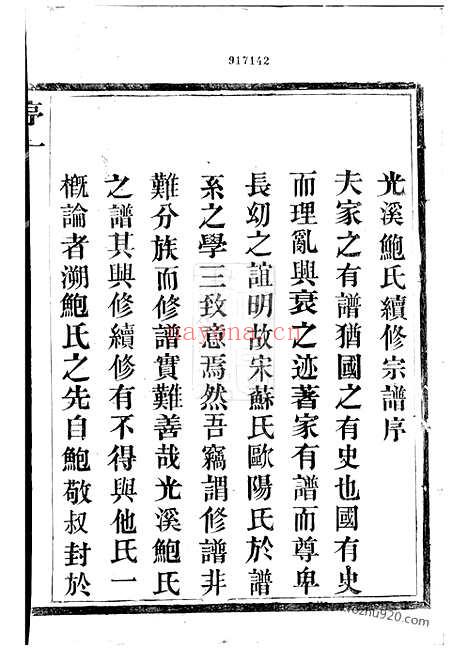 917142
光溪鮑氏續修宗譜序
夫家之有譜猶國之有史也國有史
而理亂興衰之迹著家有譜而尊卑
長幼之誼明故宋蘇氏歐陽氏於譜
系之學三致意焉然吾竊謂修譜非
難分族而修譜實難善哉光溪鮑氏
之譜其與修續修有不得與他氏一
概論者溯鮑氏之先自鮑敬叔封於
nayona.cn
www.fozhu920.com